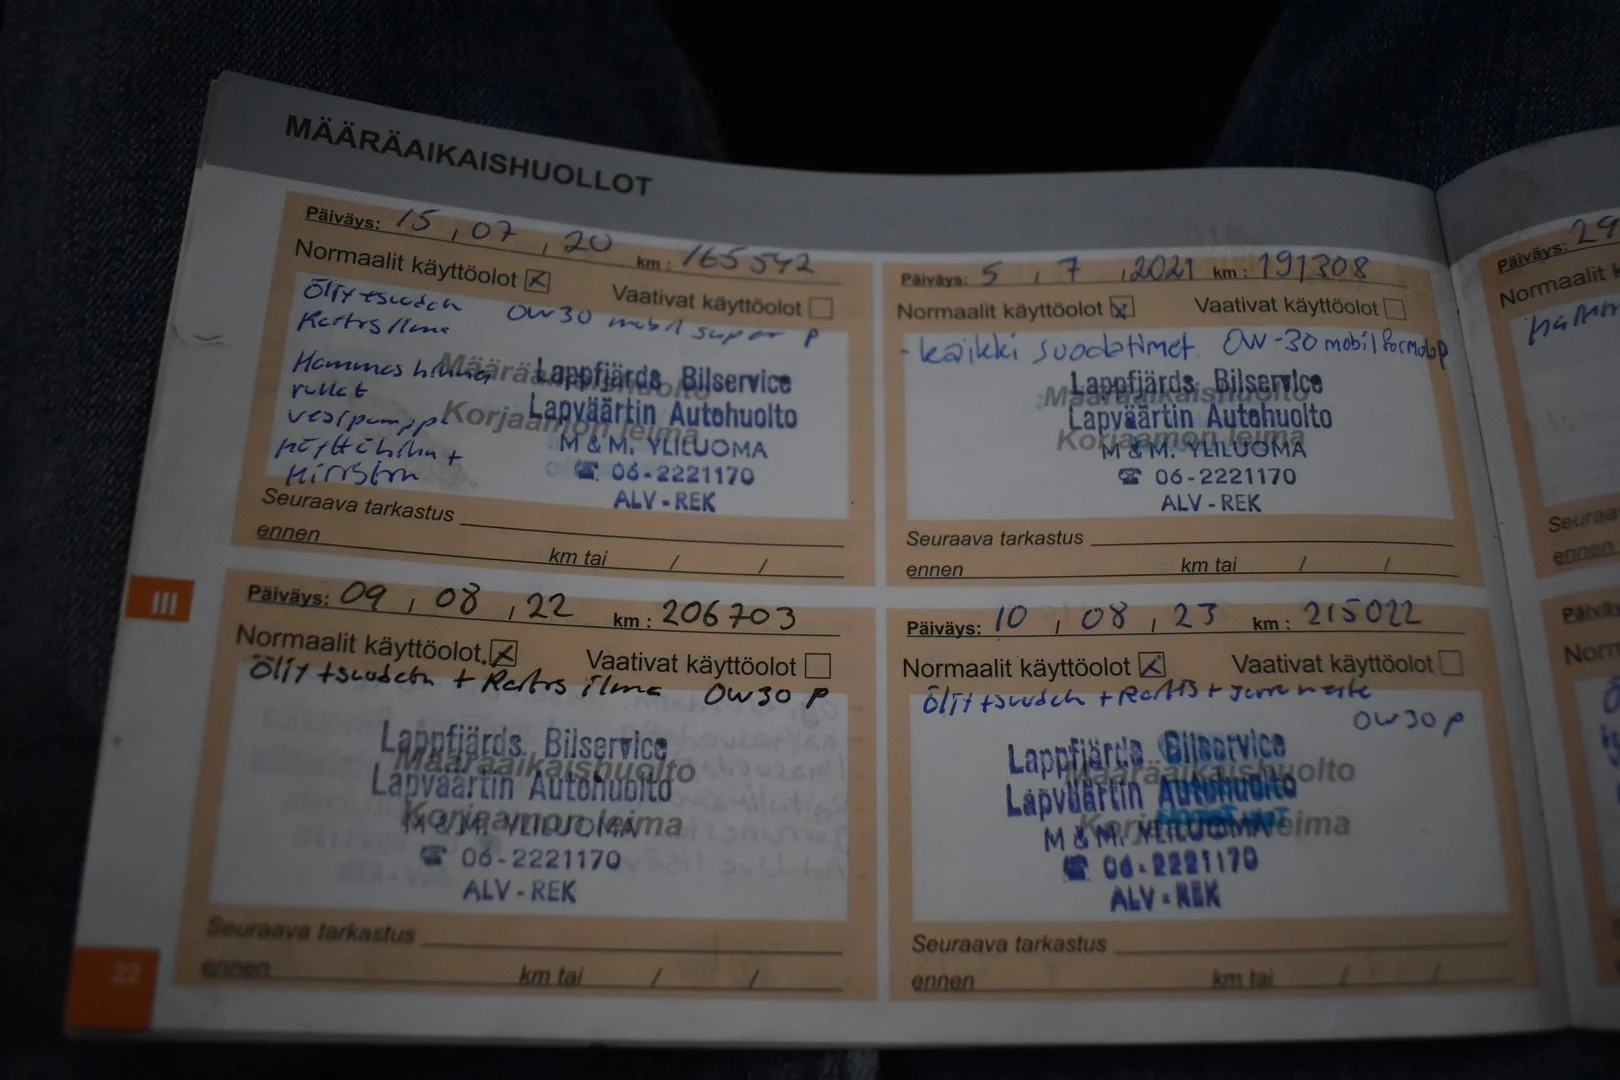 MÄÄRÄAIKAISHUOLLOT
Päiväys: 15 , 07 , 20 km : 165 542
Normaalit käyttöolot ☒ Vaativat käyttöolot ☐
Öljyt+suodatin 0W30 mobil super P
Raitis ilma
Hammas hihna
rullat
vesipumppu
käyttöhihna +
kiristin
Määräaikaishuolto
Korjaamon leima
Lappfjärds Bilservice
Lapväärtin Autohuolto
M & M. YLILUOMA
☎ 06-2221170
ALV - REK
Seuraava tarkastus
ennen km tai / /
Päiväys: 5 , 7 , 2021 km : 191308
Normaalit käyttöolot ☒ Vaativat käyttöolot ☐
- kaikki suodatimet. 0W-30 mobil formula p
Määräaikaishuolto
Korjaamon leima
Lappfjärds Bilservice
Lapväärtin Autohuolto
M & M. YLILUOMA
☎ 06-2221170
ALV - REK
Seuraava tarkastus
ennen km tai / /
III
Päiväys: 09 , 08 , 22 km : 206703
Normaalit käyttöolot ☒ Vaativat käyttöolot ☐
Öljyt+suodatin + Raitis ilma 0W30 P
Määräaikaishuolto
Korjaamon leima
Lappfjärds Bilservice
Lapväärtin Autohuolto
M & M. YLILUOMA
☎ 06-2221170
ALV - REK
Seuraava tarkastus
ennen km tai / /
Päiväys: 10 , 08 , 23 km : 215022
Normaalit käyttöolot ☒ Vaativat käyttöolot ☐
Öljyt+suodatin + Raitis + Jarruneste
0W30 P
Määräaikaishuolto
Korjaamon leima
Lappfjärds Bilservice
Lapväärtin Autohuolto
M & M. YLILUOMA
☎ 06-2221170
ALV - REK
Seuraava tarkastus
ennen km tai / /
22
Päiväys: 29
Normaalit
ennen